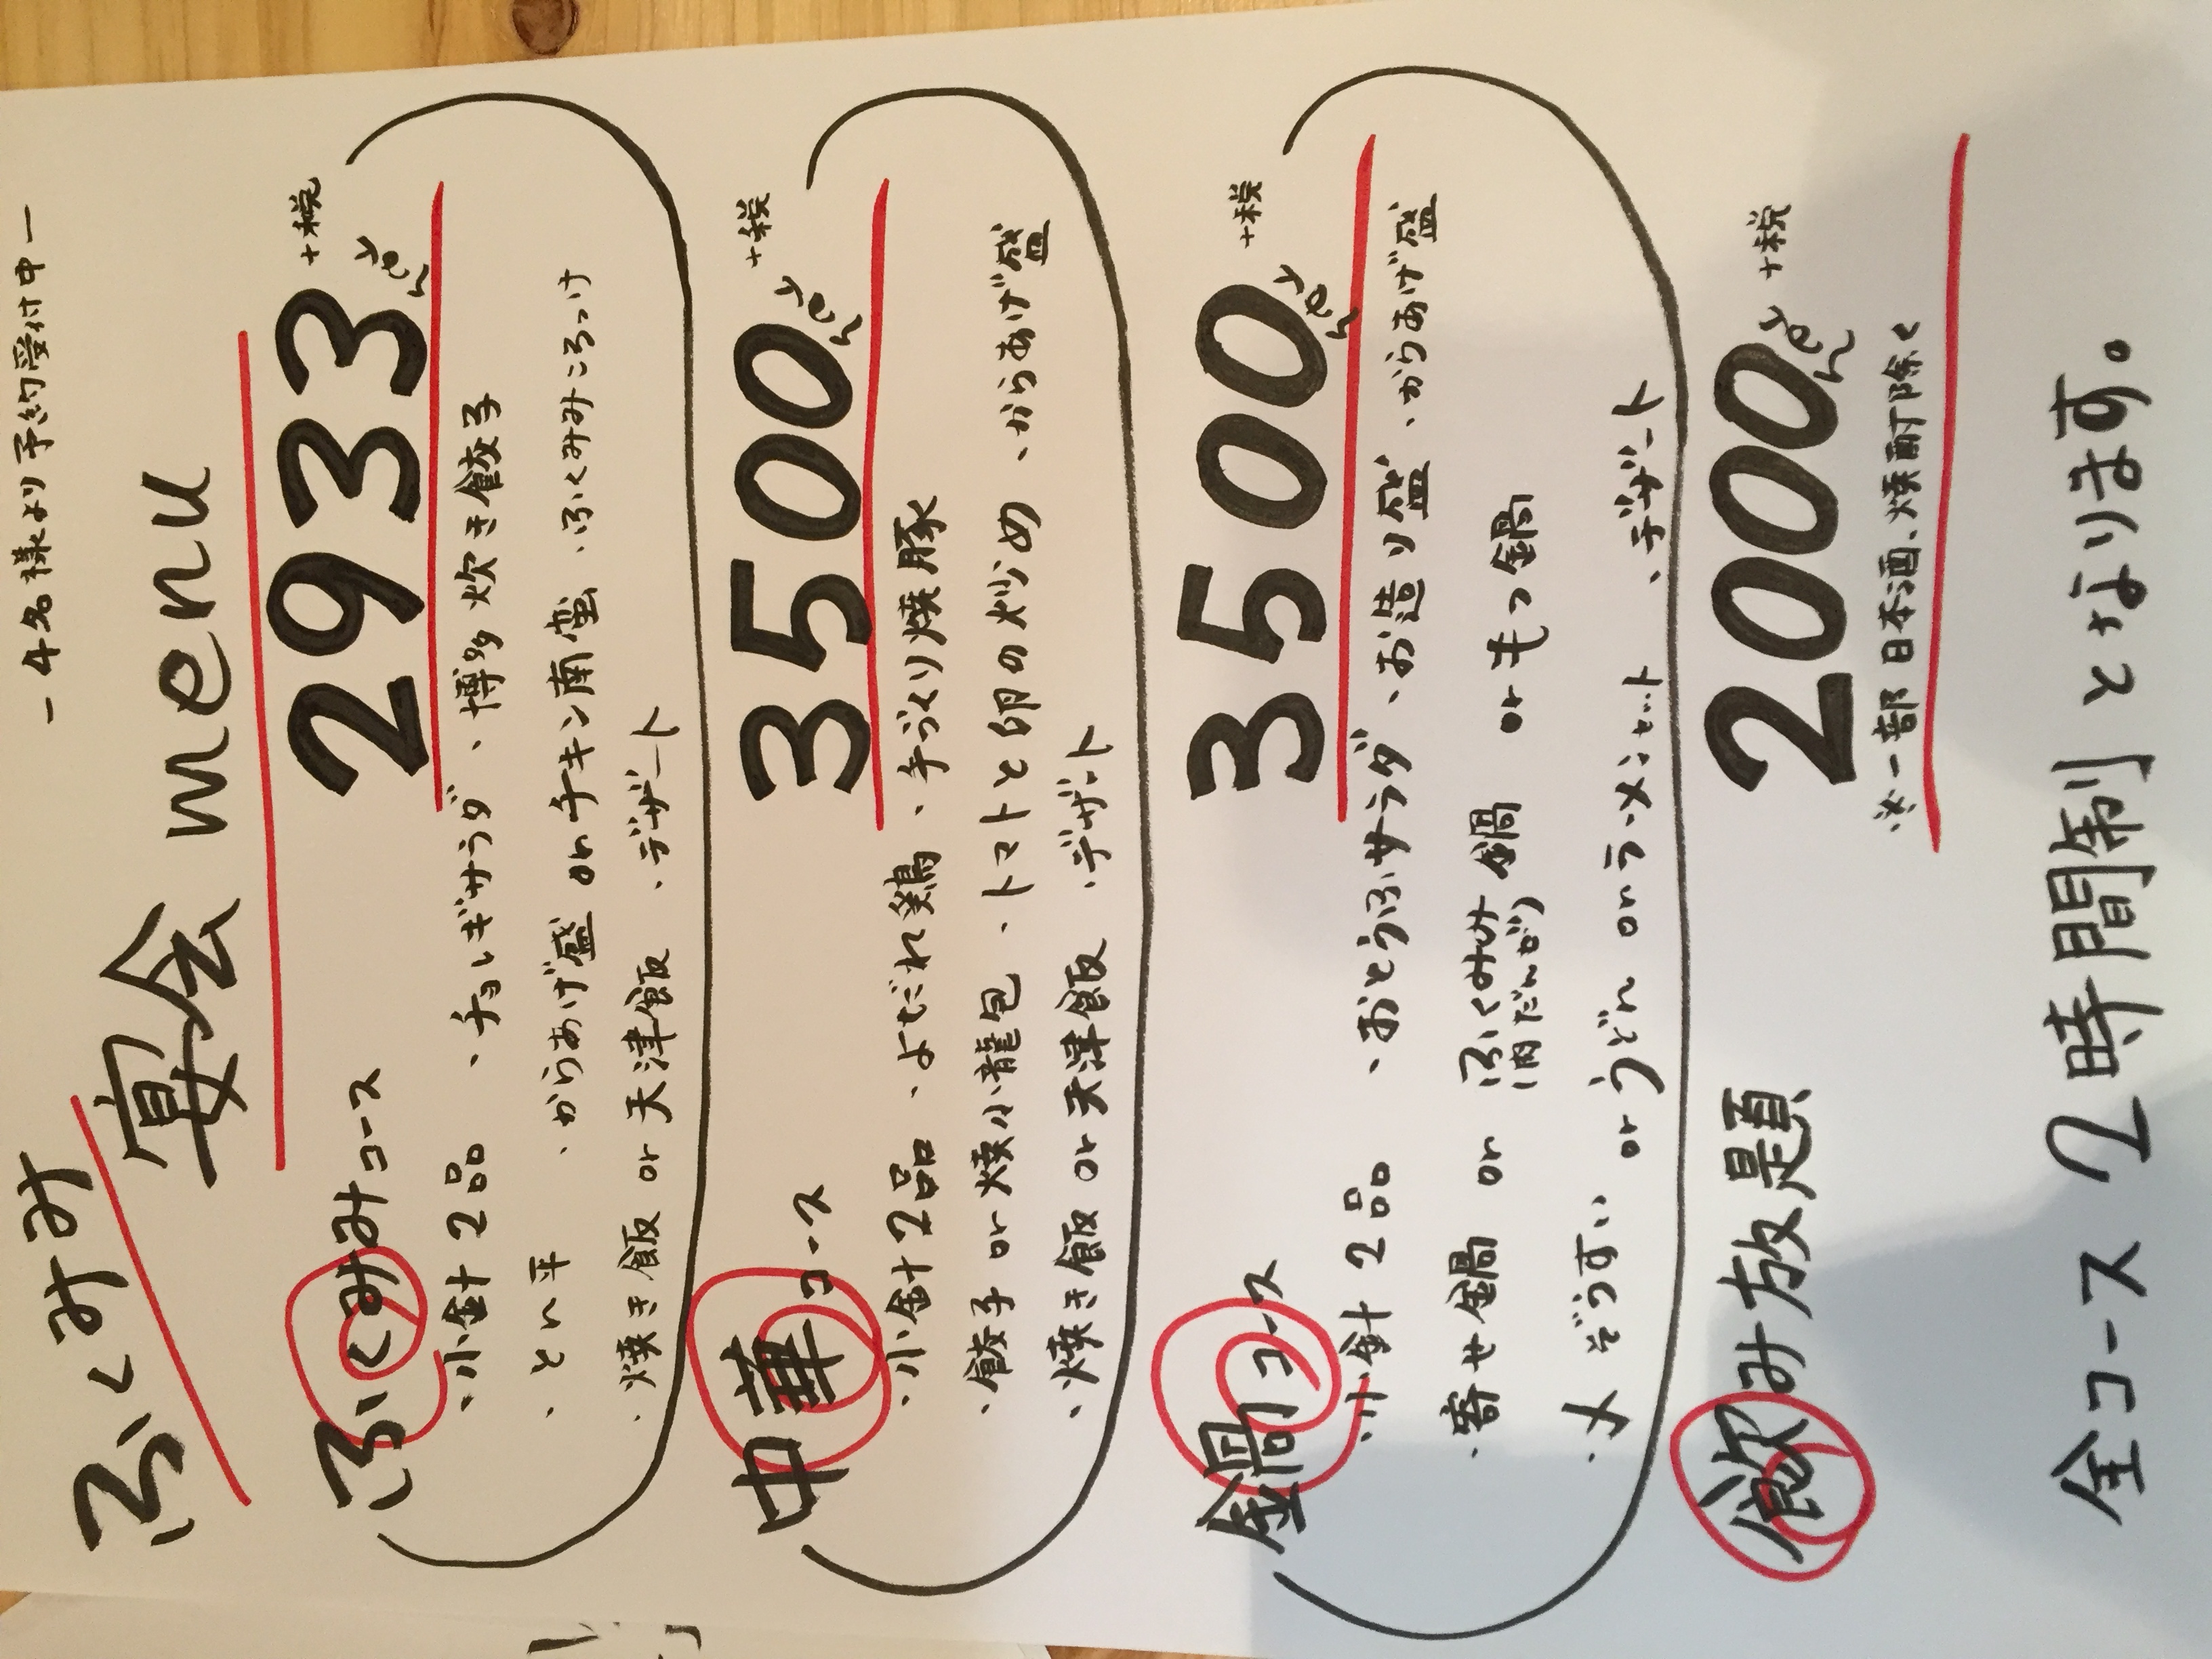 ー4名様より予約受付中ー
ふくみみ
宴会 menu
ふくみみコース 2933えん +税
・小針2品 ・チョレギサラダ ・博多炊き餃子
・とん平 ・からあげ盛 or チキン南蛮 ・ふくみみころっけ
・焼き飯 or 天津飯 ・デザート
中華コース 3500えん +税
・小針2品 ・よだれ鶏 ・手づくり焼豚
・餃子 or 焼小龍包 ・トマトと卵の炒め ・からあげ盛
・焼き飯 or 天津飯 ・デザート
鍋コース 3500えん +税
・小針2品 ・おとうふサラダ ・お造り盛 ・からあげ盛
・寄せ鍋 or ふくみみ鍋 or もつ鍋
(肉だんご)
・〆 ぞうすい or うどん or ラーメンセット ・デザート
飲み放題 2000えん +税
※一部日本酒、焼酎除く
全コース2時間制となります。